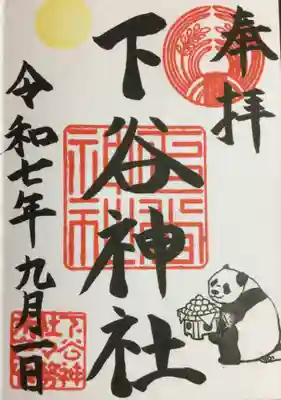 奉拝
下谷神社
令和七年九月一日
下谷神社